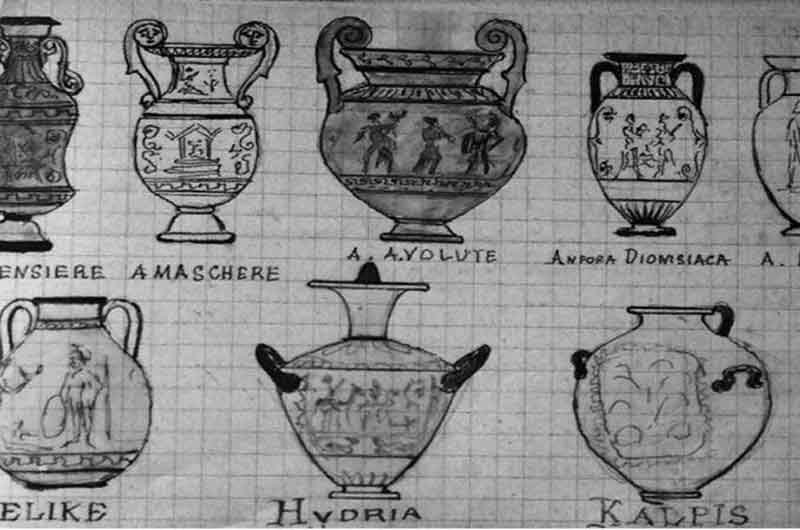 ENSIERE A MASCHERE A. A. VOLUTE ANFORA DIONISIACA A.
ELIKE HYDRIA KALPIS